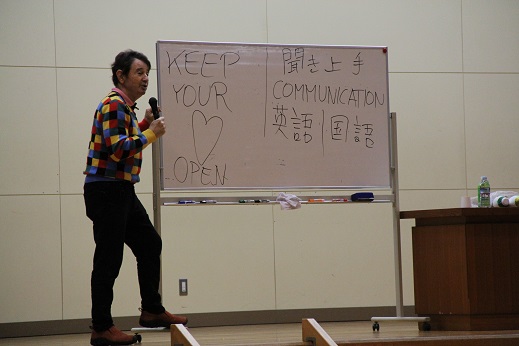 KEEP
YOUR
♡
OPEN
聞き上手
COMMUNICATION
英語|国語